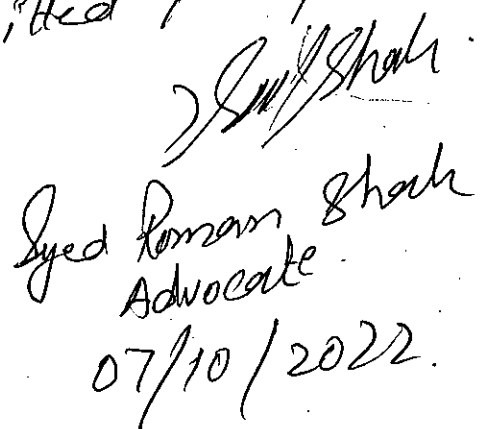 Syed Roman Shah
Advocate.
07/10/2022.